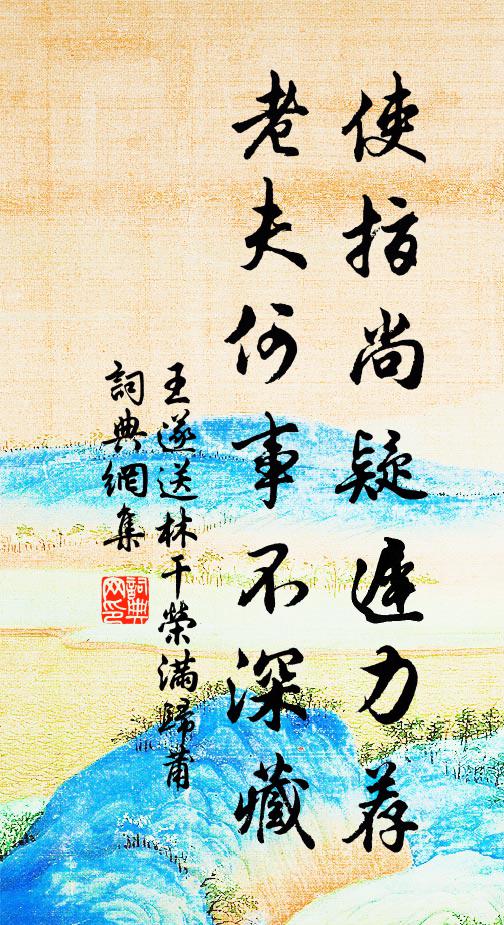 使指尚疑遲力荐
老夫何事不深藏
王遂送林干榮滿歸莆
詞典網集
詞典